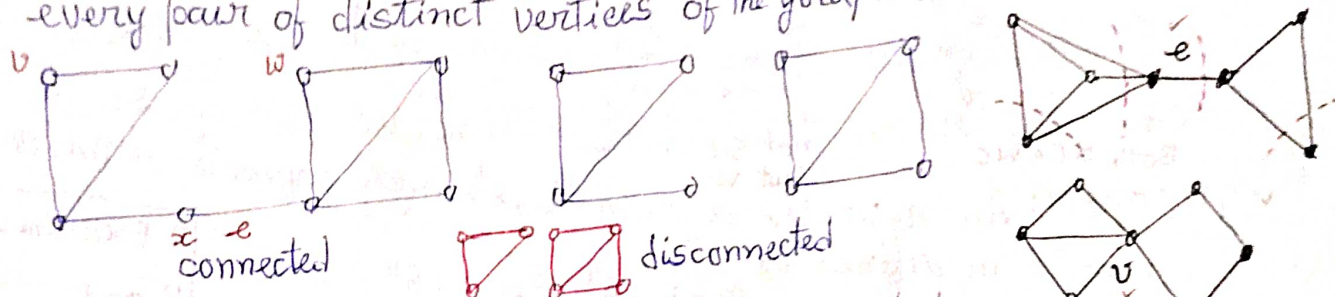 every pair of distinct vertices of the
v
w
e
x e
connected
disconnected
v